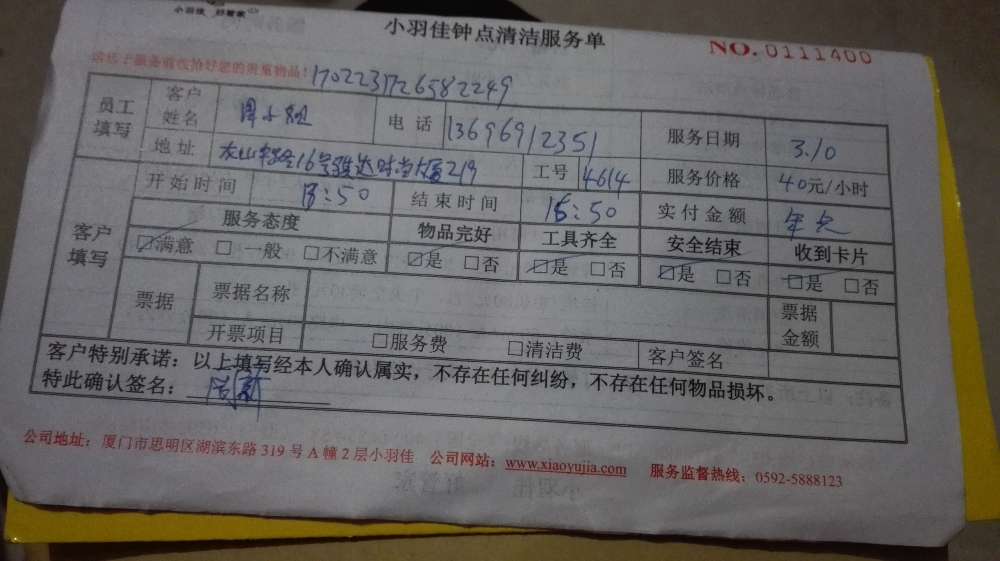 小羽佳 好管家
小羽佳钟点清洁服务单
NO.0111400
请您于服务前收拾好您的贵重物品!
170223726582249
员工填写 客户姓名 周小姐 电话 13696912351 服务日期 3.10
地址 16号骏达时尚大厦219 工号 4614 服务价格 40元/小时
客户填写 开始时间 13:50 结束时间 15:50 实付金额 年卡
服务态度 物品完好 工具齐全 安全结束 收到卡片
☑满意 □一般 □不满意 ☑是 □否 ☑是 □否 ☑是 □否 ☑是 □否
票据 票据名称 票据金额
开票项目 □服务费 □清洁费 客户签名
客户特别承诺：以上填写经本人确认属实，不存在任何纠纷，不存在任何物品损坏。
特此确认签名：
公司地址：厦门市思明区湖滨东路 319 号 A 幢 2 层小羽佳 公司网站：www.xiaoyujia.com 服务监督热线：0592-5888123